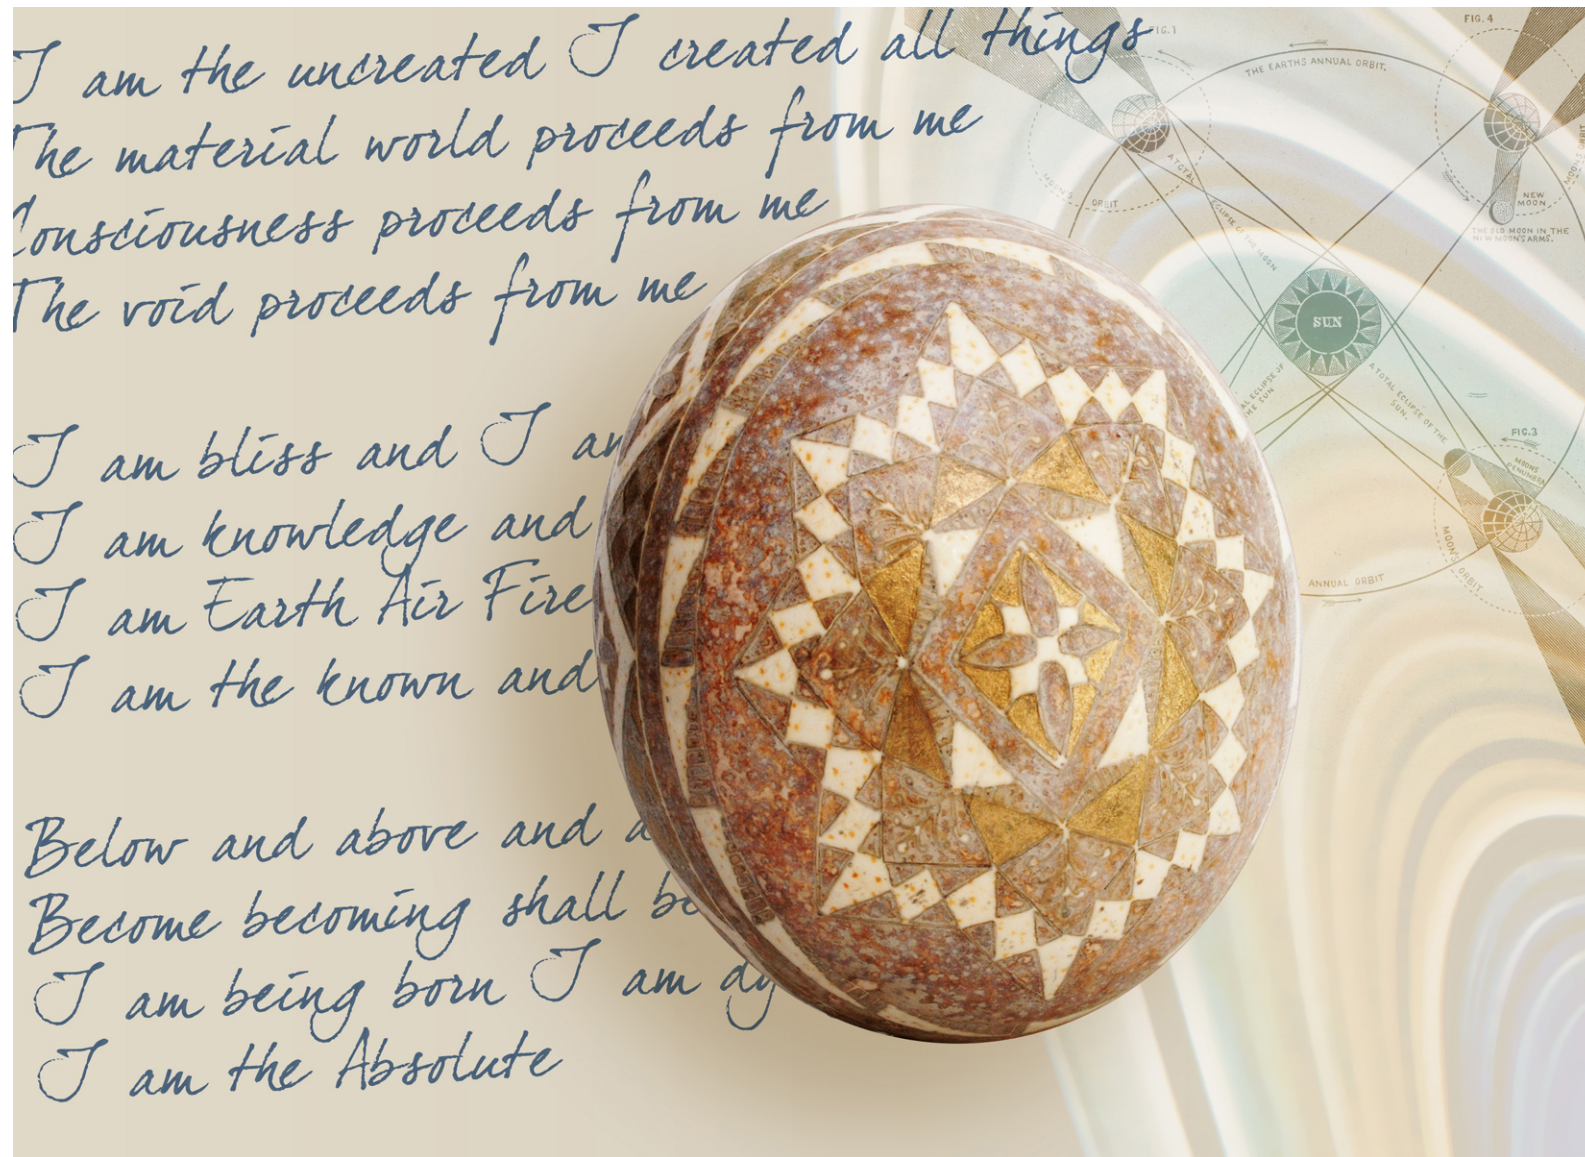 I am the uncreated I created all things
The material world proceeds from me
Consciousness proceeds from me
The void proceeds from me
I am bliss and I am
I am knowledge and
I am Earth Air Fire
I am the known and
Below and above and a
Become becoming shall be
I am being born I am dy
I am the Absolute
FIG.1
THE EARTHS ANNUAL ORBIT.
FIG. 4
MOON'S ORBIT
A TOTAL ECLIPSE OF THE MOON
MOON'S ORBIT
NEW MOON
THE OLD MOON IN THE
NEW MOON'S ARMS.
SUN
AL ECLIPSE OF
THE SUN
A TOTAL ECLIPSE OF THE
SUN.
FIG.3
MOONS
PENUMBRA
MOON'S ORBIT
ANNUAL ORBIT